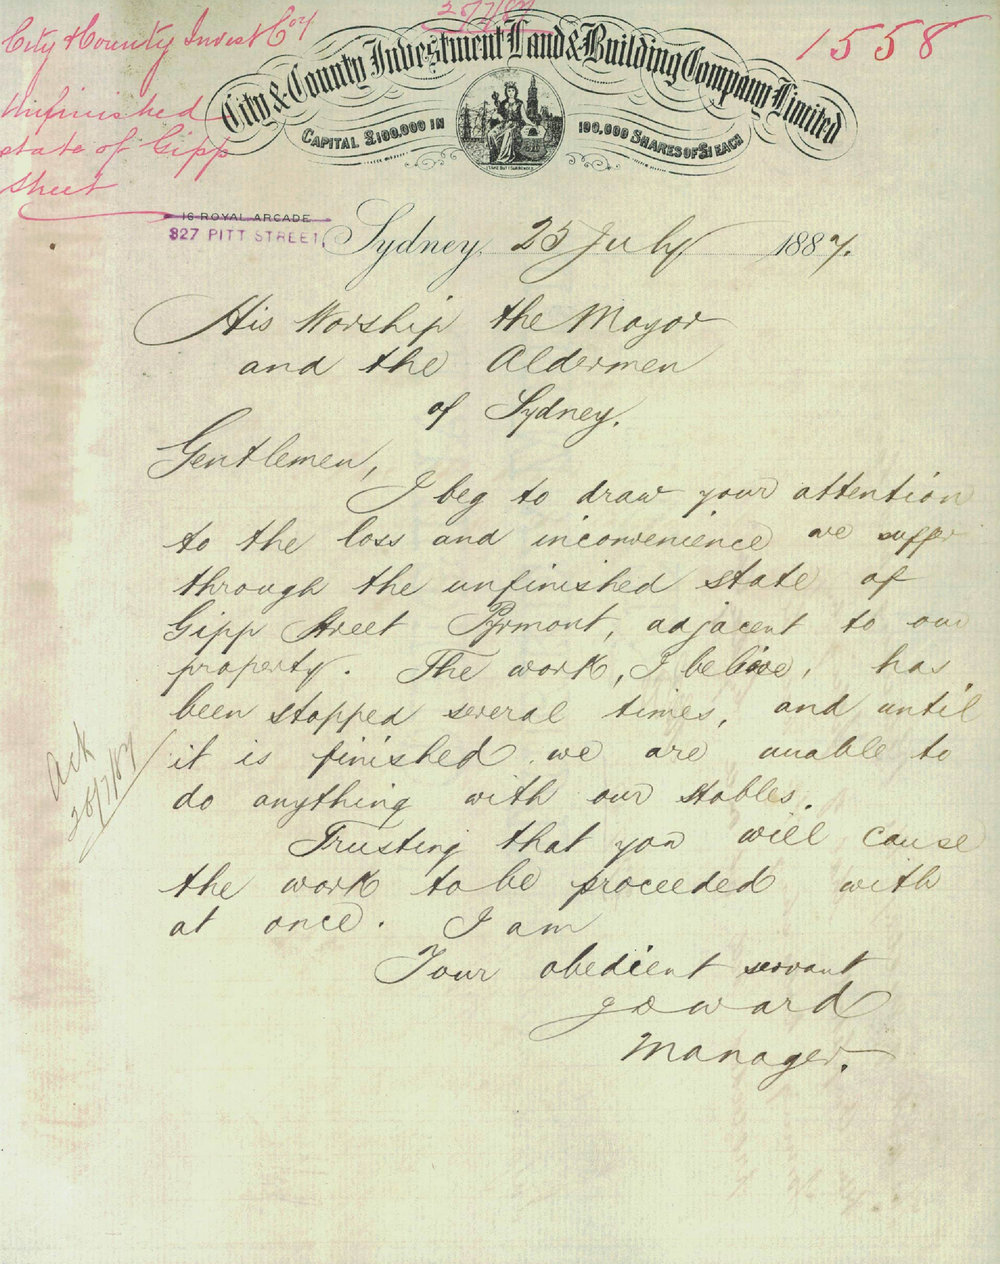 26/7/87
City & County Invest Coy
1558
Unfinished
state of Gipp
Street
City & County Investment Land & Building Company Limited
CAPITAL £100,000 IN
100,000 SHARES OF £1 EACH
16 ROYAL ARCADE
327 PITT STREET,
Sydney, 25 July 1887.
His Worship the Mayor
and the Aldermen
of Sydney.
Gentlemen,
I beg to draw your attention
to the loss and inconvenience we suffer
through the unfinished state of
Gipp Street Pyrmont, adjacent to our
property. The work, I believe, has
been stopped several times, and until
it is finished we are unable to
do anything with our stables.
Ack
26/7/87
Trusting that you will cause
the work to be proceeded with
at once. I am
Your obedient servant
Manager.